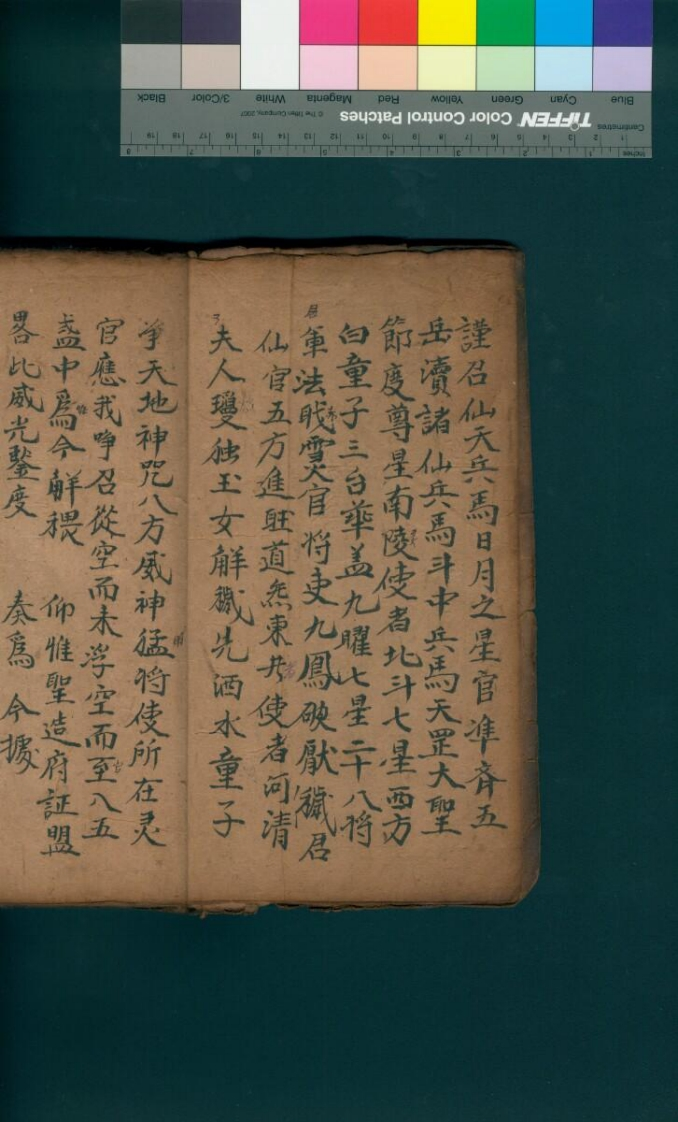 Blue Cyan Green Yellow Red Magenta White 3/Color Black
TIFFEN Color Control Patches © The Tiffen Company, 2007
Centimetres
Inches
謹召仙天兵馬日月之星官準齊五
岳瀆諸仙兵馬斗中兵馬天罡大聖
節度尊星南陵使者北斗七星西方
白童子三台華盖九曜七星二十八将
軍法戝雪火官将吏九鳳破厭穢君
仙官五方進旺道炁東井使者河清
夫人独玉女解穢先洒水童子
净天地神咒八方威神猛将使所在灵
官應我呼召從空而来浮空而至八五
盏中為今解穢 仰惟聖造府証盟
畧比威光鑒度 奏為 今據